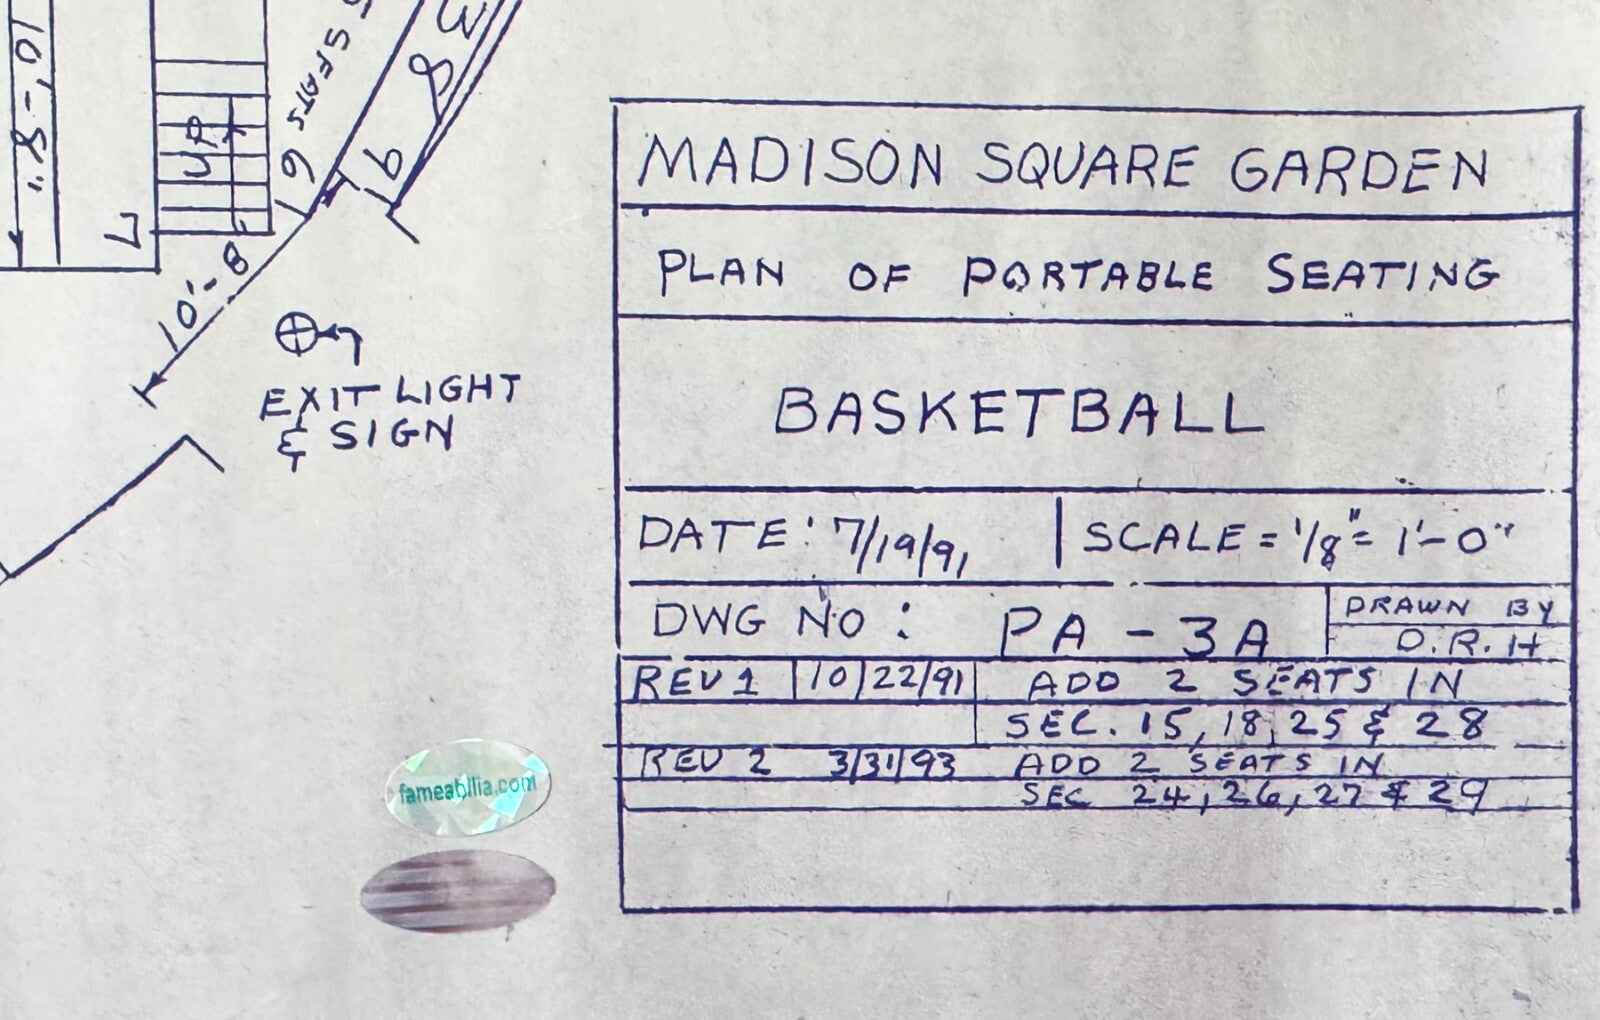 10'-8"
UP
SEATS
16
38
19
10'-8"
EXIT LIGHT
& SIGN
fameabilia.com
MADISON SQUARE GARDEN
PLAN OF PORTABLE SEATING
BASKETBALL
DATE: 7/19/91 SCALE = 1/8" = 1'-0"
DWG NO: PA-3A
DRAWN BY
D.R.H
REV 1 10/22/91 ADD 2 SEATS IN
SEC. 15, 18, 25 & 28
REV 2 3/31/93 ADD 2 SEATS IN
SEC 24, 26, 27 & 29